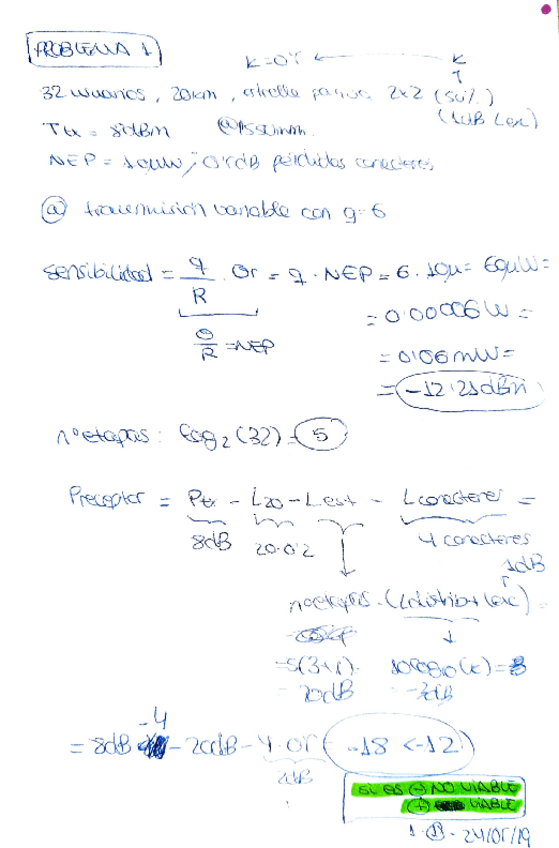 PROBLEMA 1
K=0'5 ← K
32 usuarios, 20km, estrella pasiva 2x2 (50%)
(1dB Lex)
Ttx = 8dBm @1550nm.
NEP = 10µW, 0'5dB pérdidas conectores
ⓐ transmisión variable con q=6
Sensibilidad = q/R · σr = q · NEP = 6 · 10µ = 60µW =
σ/R = NEP
= 0'00006W =
= 0'06mW =
= -12'21dBm
nºetapas: log₂(32) = 5
Preceptor = Ptx - L20 - Lest - Lconectores =
8dB 20·0'2 4 conectores
1dB
nºetapas · (Ldistrib + Lex) =
= 5(3+1) 10log10(k) =
20dB -3dB
-4
= 8dB - 20dB - 4·0'5 = -18 < -12
2dB
SI ES ⊖ NO VIABLE
⊕ VIABLE
24/05/19